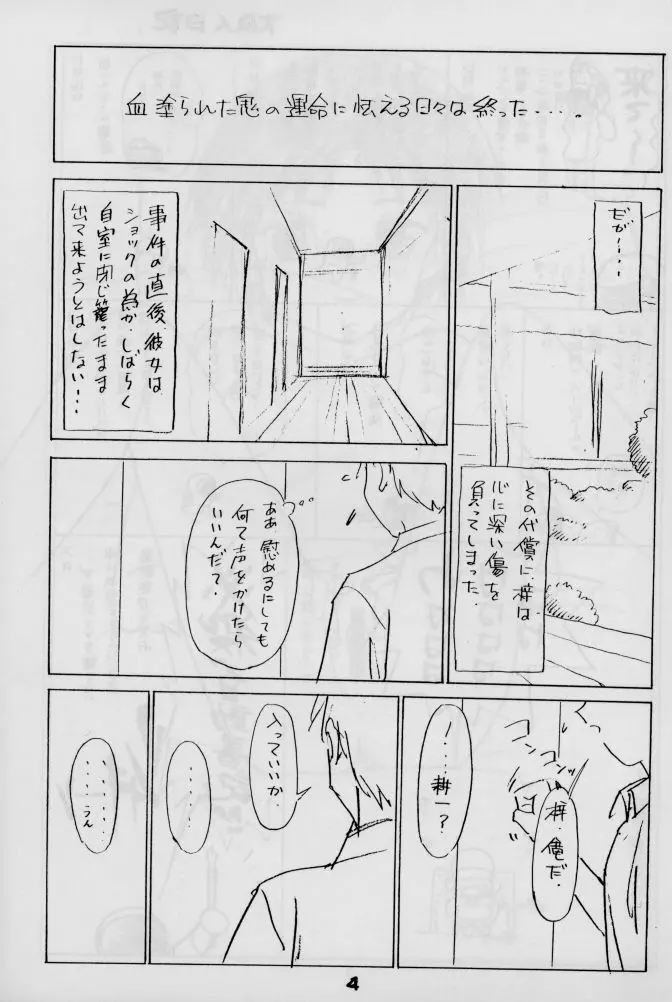 血塗られた鬼の運命に怯える日々は終った・・・。
だが・・・
その代償に、梓は
心に深い傷を
負ってしまった。
事件の直後、彼女は
ショックの為か、しばらく
自室に閉じ籠ったまま
出て来ようとはしない・・・
ああ 慰めるにしても
何て声をかけたら
いいんだて・
コンコンッ
梓、俺だ。
・・・・耕一?
入っていいか。
・・・・・
・・・・・
・・・・うん
4